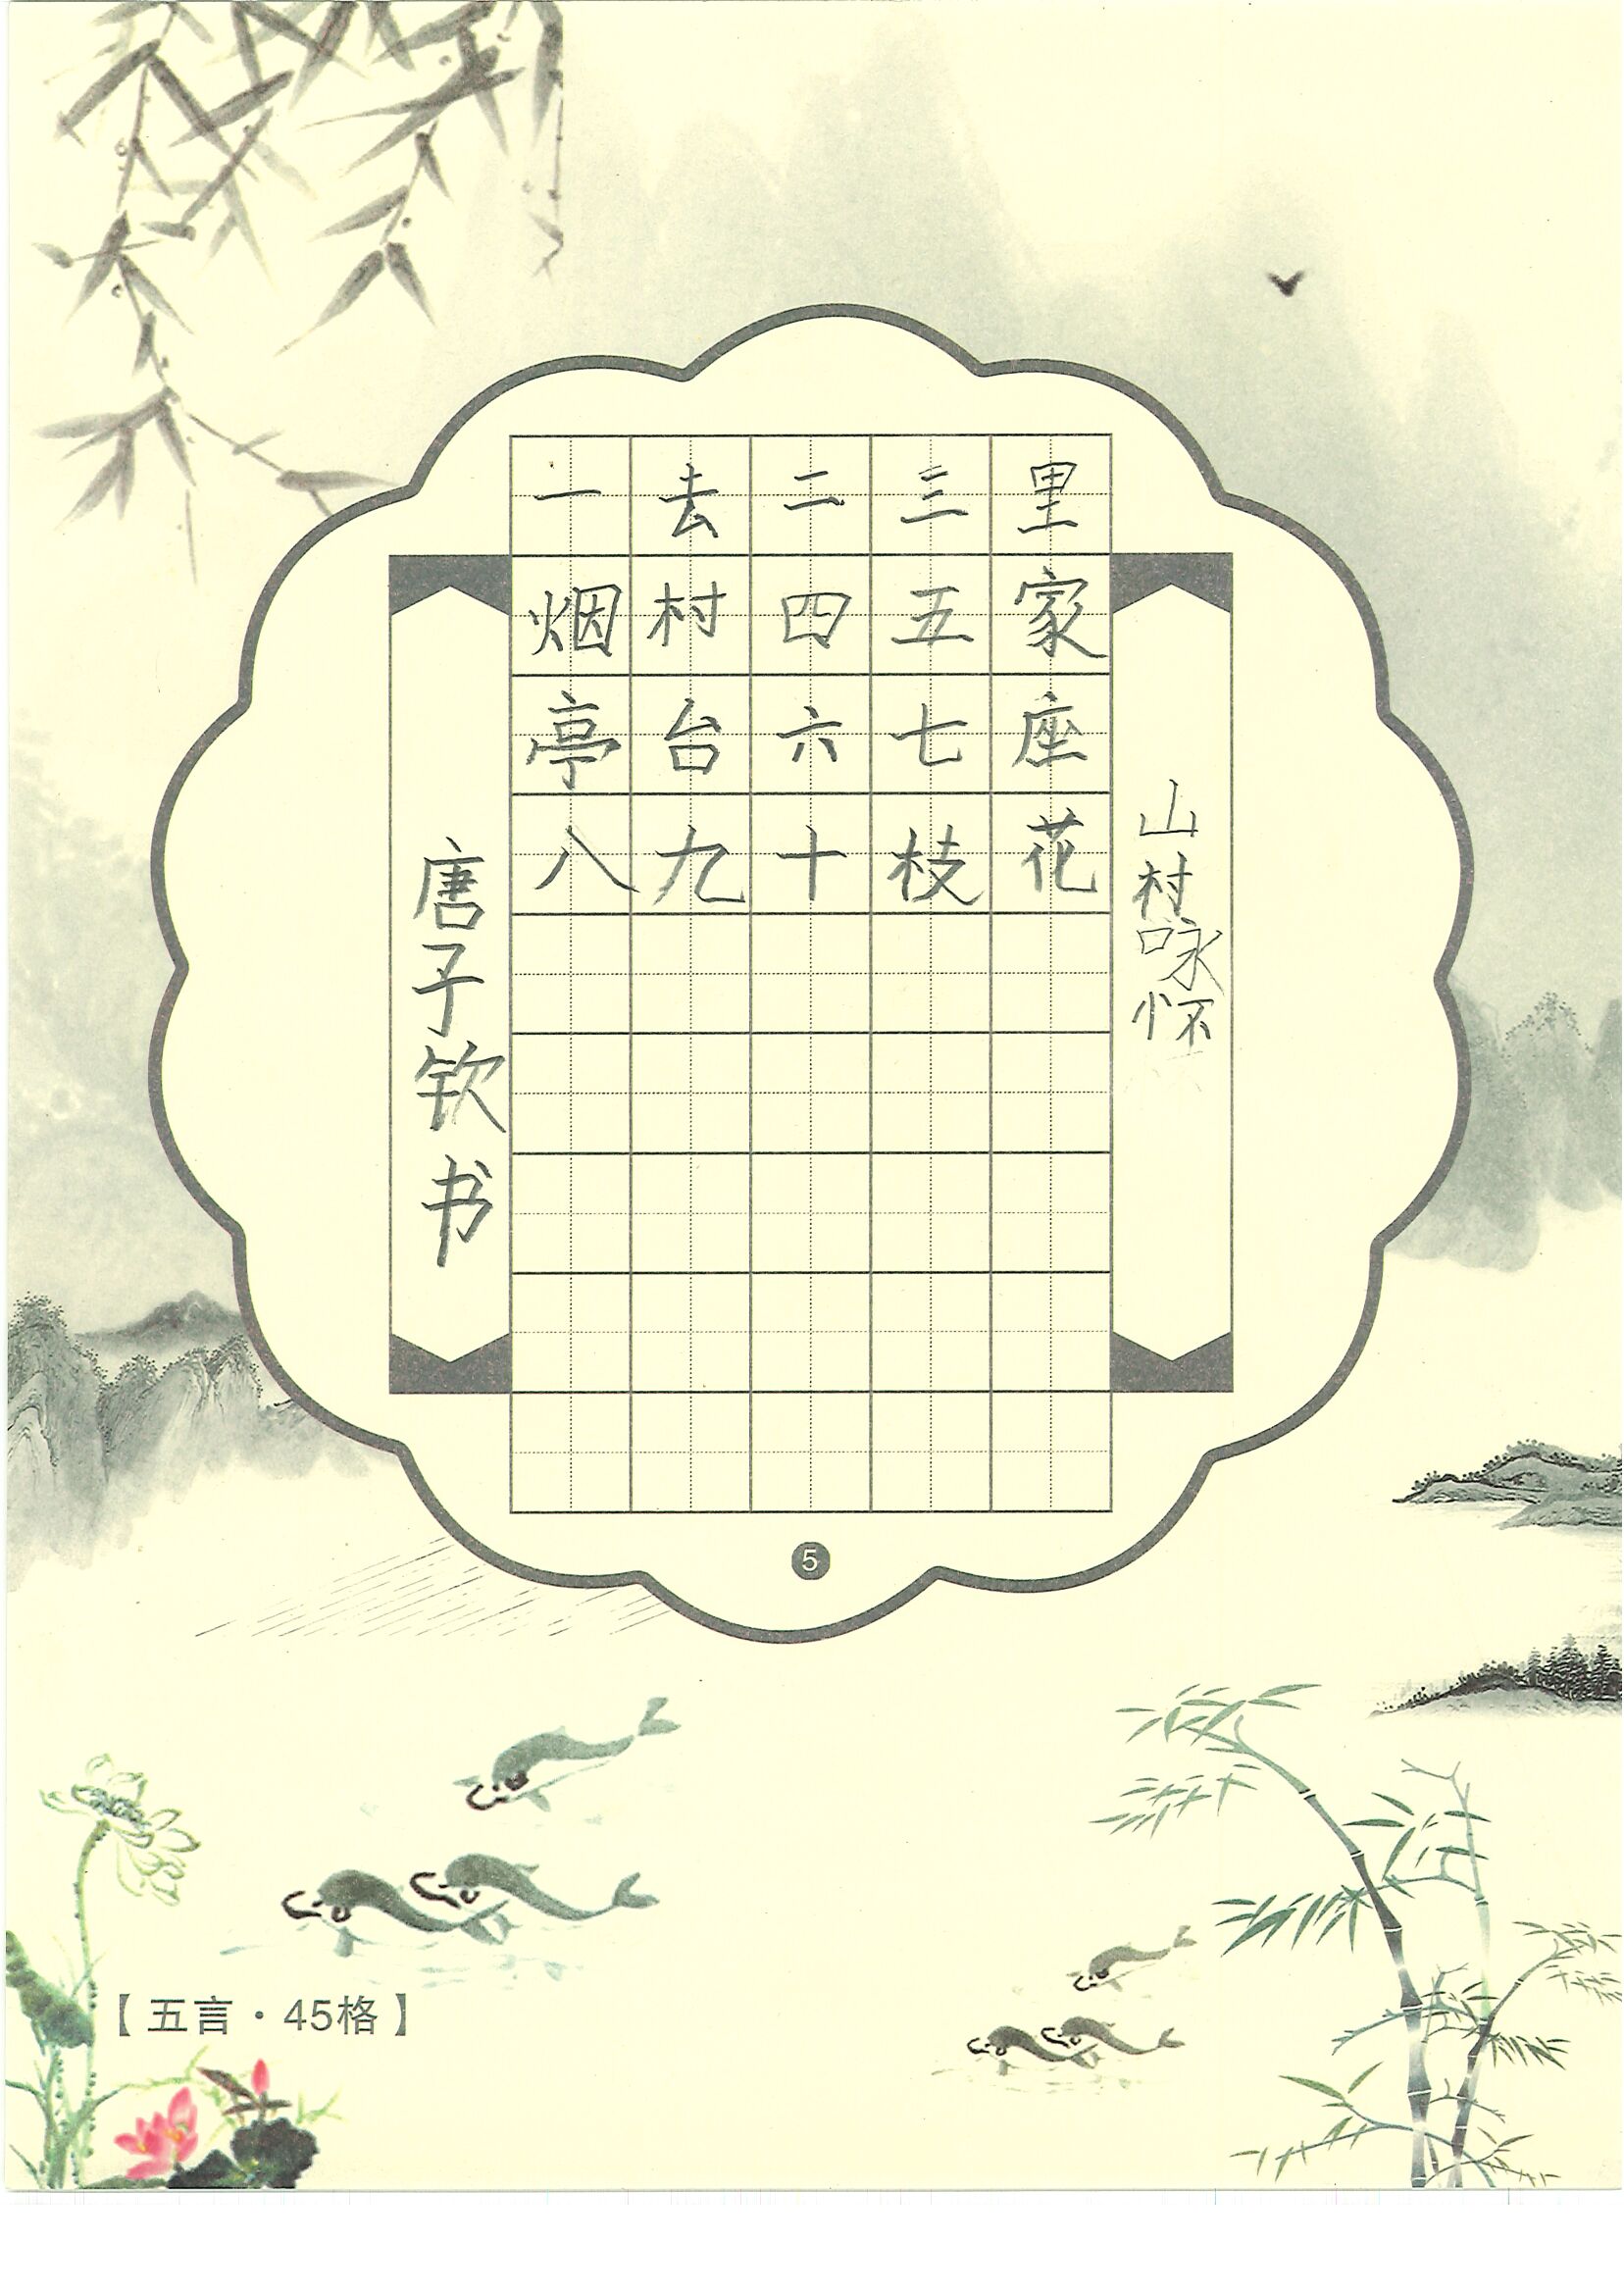 山村咏怀
一去二三里
烟村四五家
亭台六七座
八九十枝花
唐子钦书
5
【五言·45格】